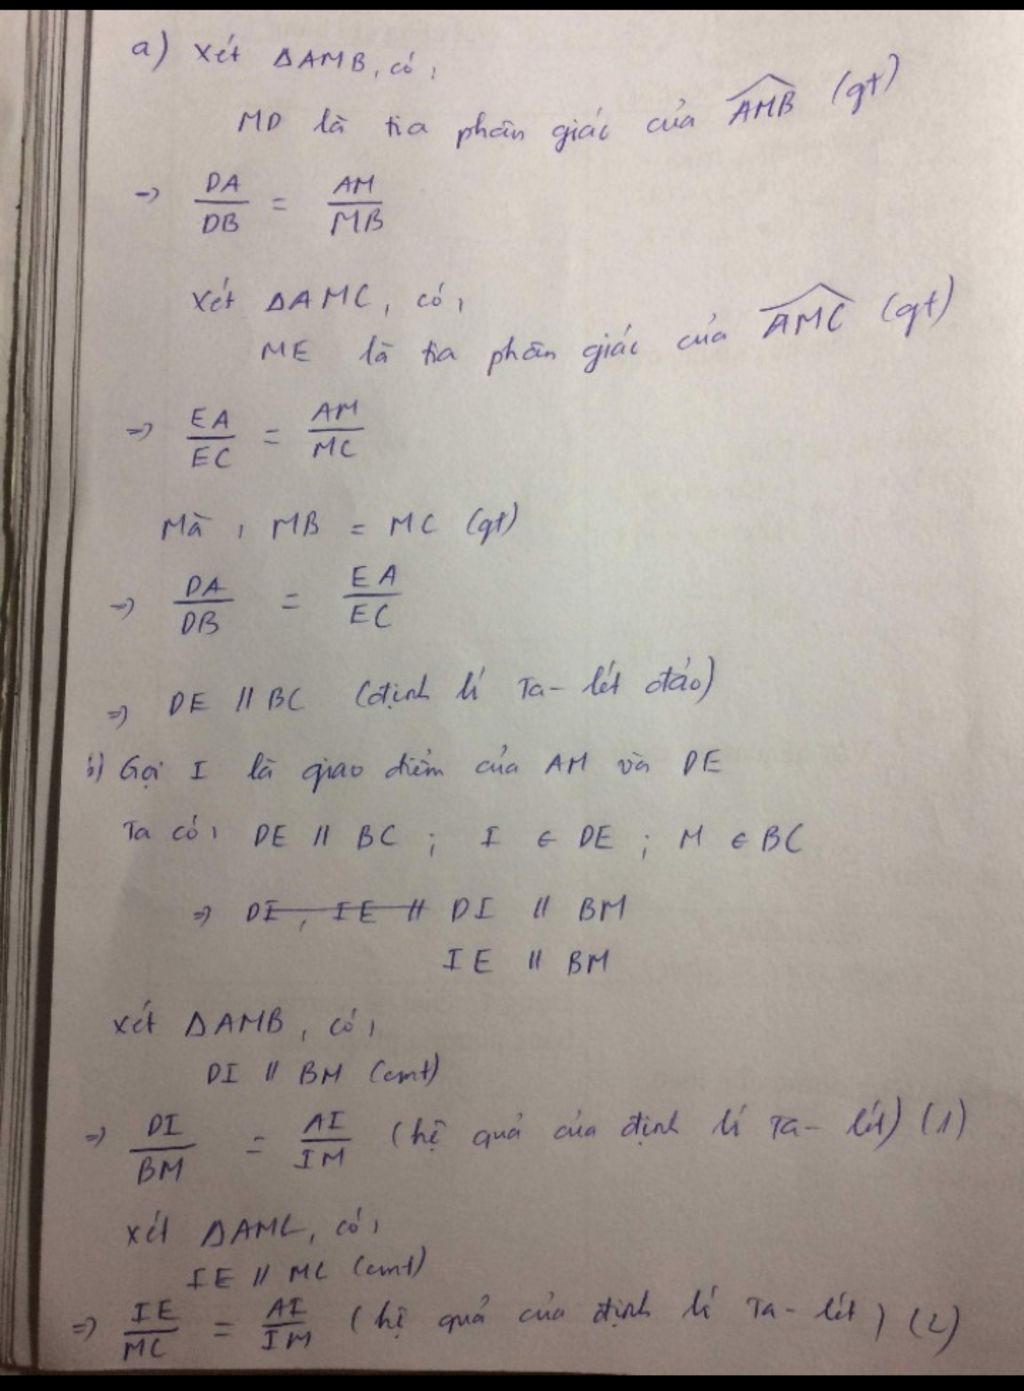 a) Xét ΔAMB, có,
MD là tia phân giác của \widehat{AMB} (gt)
=> \frac{DA}{DB} = \frac{AM}{MB}
Xét ΔAMC, có,
ME là tia phân giác của \widehat{AMC} (gt)
=> \frac{EA}{EC} = \frac{AM}{MC}
Mà, MB = MC (gt)
=> \frac{DA}{DB} = \frac{EA}{EC}
=> DE // BC (định lí Ta-lét đảo)
b) Gọi I là giao điểm của AM và DE
Ta có, DE // BC ; I ∈ DE ; M ∈ BC
=> ~~DI, IE //~~ DI // BM
IE // BM
Xét ΔAMB, có,
DI // BM (cmt)
=> \frac{DI}{BM} = \frac{AI}{IM} (hệ quả của định lí Ta-lét) (1)
Xét ΔAMC, có,
IE // MC (cmt)
=> \frac{IE}{MC} = \frac{AI}{IM} (hệ quả của định lí Ta-lét) (2)